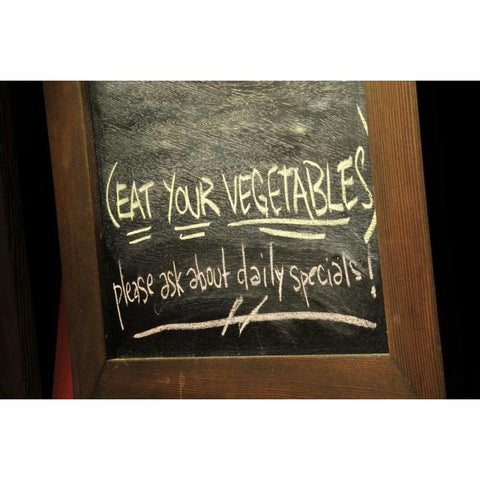 (EAT YOUR VEGETABLES)
please ask about daily specials!